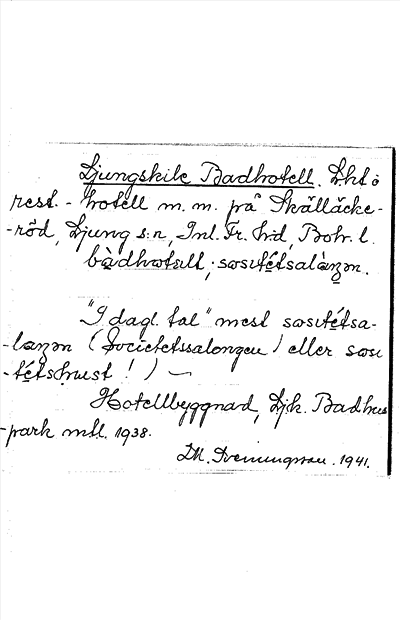 Ljungskile Badhotell. Lht o
rest. - hotell m. m. på Skälläcke-
-röd, Ljung s:n, Inl. Fr. hd, Boh. l.
bàdhωtɛll; sωsιtétsalàŋən.
"I dagl. tal" mest sωsιtétsa-
-laŋən (Societetssalongen) eller sωsι
-tétshust!) —
Hotellbyggnad, Ljk. Badhus
-park mtl. 1938.
1941.